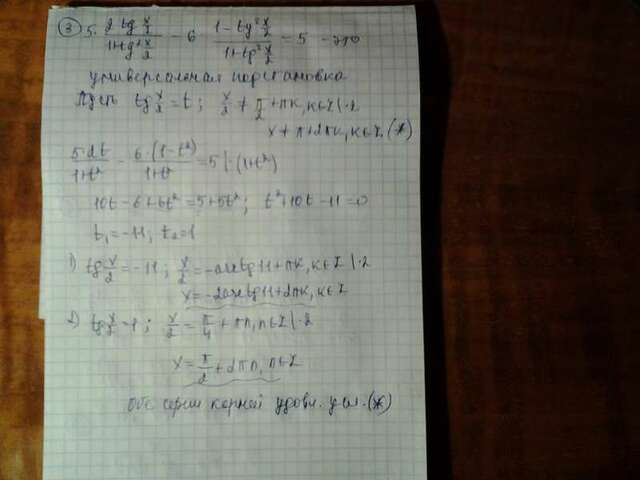 ③ 5·(2tg x/2)/(1+tg² x/2) − 6 (1−tg² x/2)/(1+tg² x/2) = 5 – это
универсальная подстановка
Пусть tg x/2 = t; x/2 ≠ π/2 + πк, к∈Z |·2
x ≠ π+2πк, к∈Z (*)
5·2t/(1+t²) − 6·(1−t²)/(1+t²) = 5 |·(1+t²)
10t − 6 + 6t² = 5+5t²; t²+10t −11=0
t₁=−11; t₂=1
1) tg x/2 = −11; x/2 = −arctg 11 + πк, к∈Z |·2
x = −2arctg 11 + 2πк, к∈Z
2) tg x/2 = 1; x/2 = π/4 + πn, n∈Z |·2
x = π/2 + 2πn, n∈Z
Обе серии корней удовл. усл. (*)